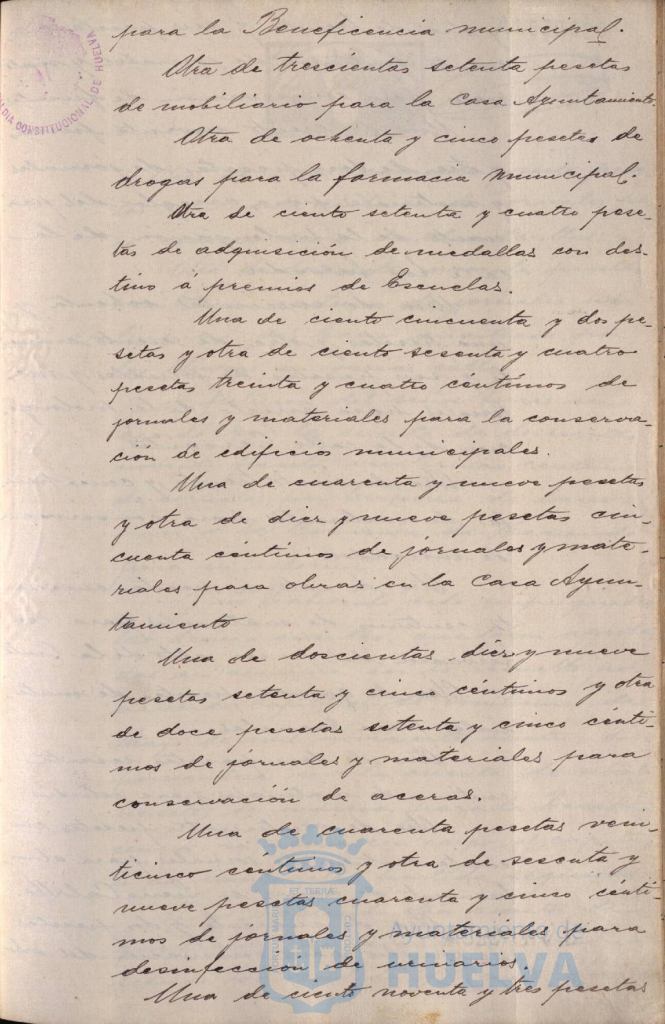 para la Beneficencia municipal.
Otra de trescientas setenta pesetas
de mobiliario para la Casa Ayuntamiento.
Otra de ochenta y cinco pesetas de
drogas para la farmacia municipal.
Otra de ciento setenta y cuatro pese-
tas de adquisición de medallas con des-
tino á premios de Escuelas.
Una de ciento cincuenta y dos pe-
setas y otra de ciento sesenta y cuatro
pesetas treinta y cuatro céntimos de
jornales y materiales para la conserva-
ción de edificios municipales.
Una de cuarenta y nueve pesetas
y otra de diez y nueve pesetas cin-
cuenta céntimos de jornales y mate-
riales para obras en la Casa Ayun-
tamiento
Una de doscientas diez y nueve
pesetas setenta y cinco céntimos y otra
de doce pesetas setenta y cinco cénti-
mos de jornales y materiales para
conservación de aceras.
Una de cuarenta pesetas vein-
ticinco céntimos y otra de sesenta y
nueve pesetas cuarenta y cinco cénti-
mos de jornales y materiales para
desinfección de
Una de ciento noventa y tres pesetas
CONSTITUCIONAL DE HUELVA
Ayuntamiento de
HUELVA